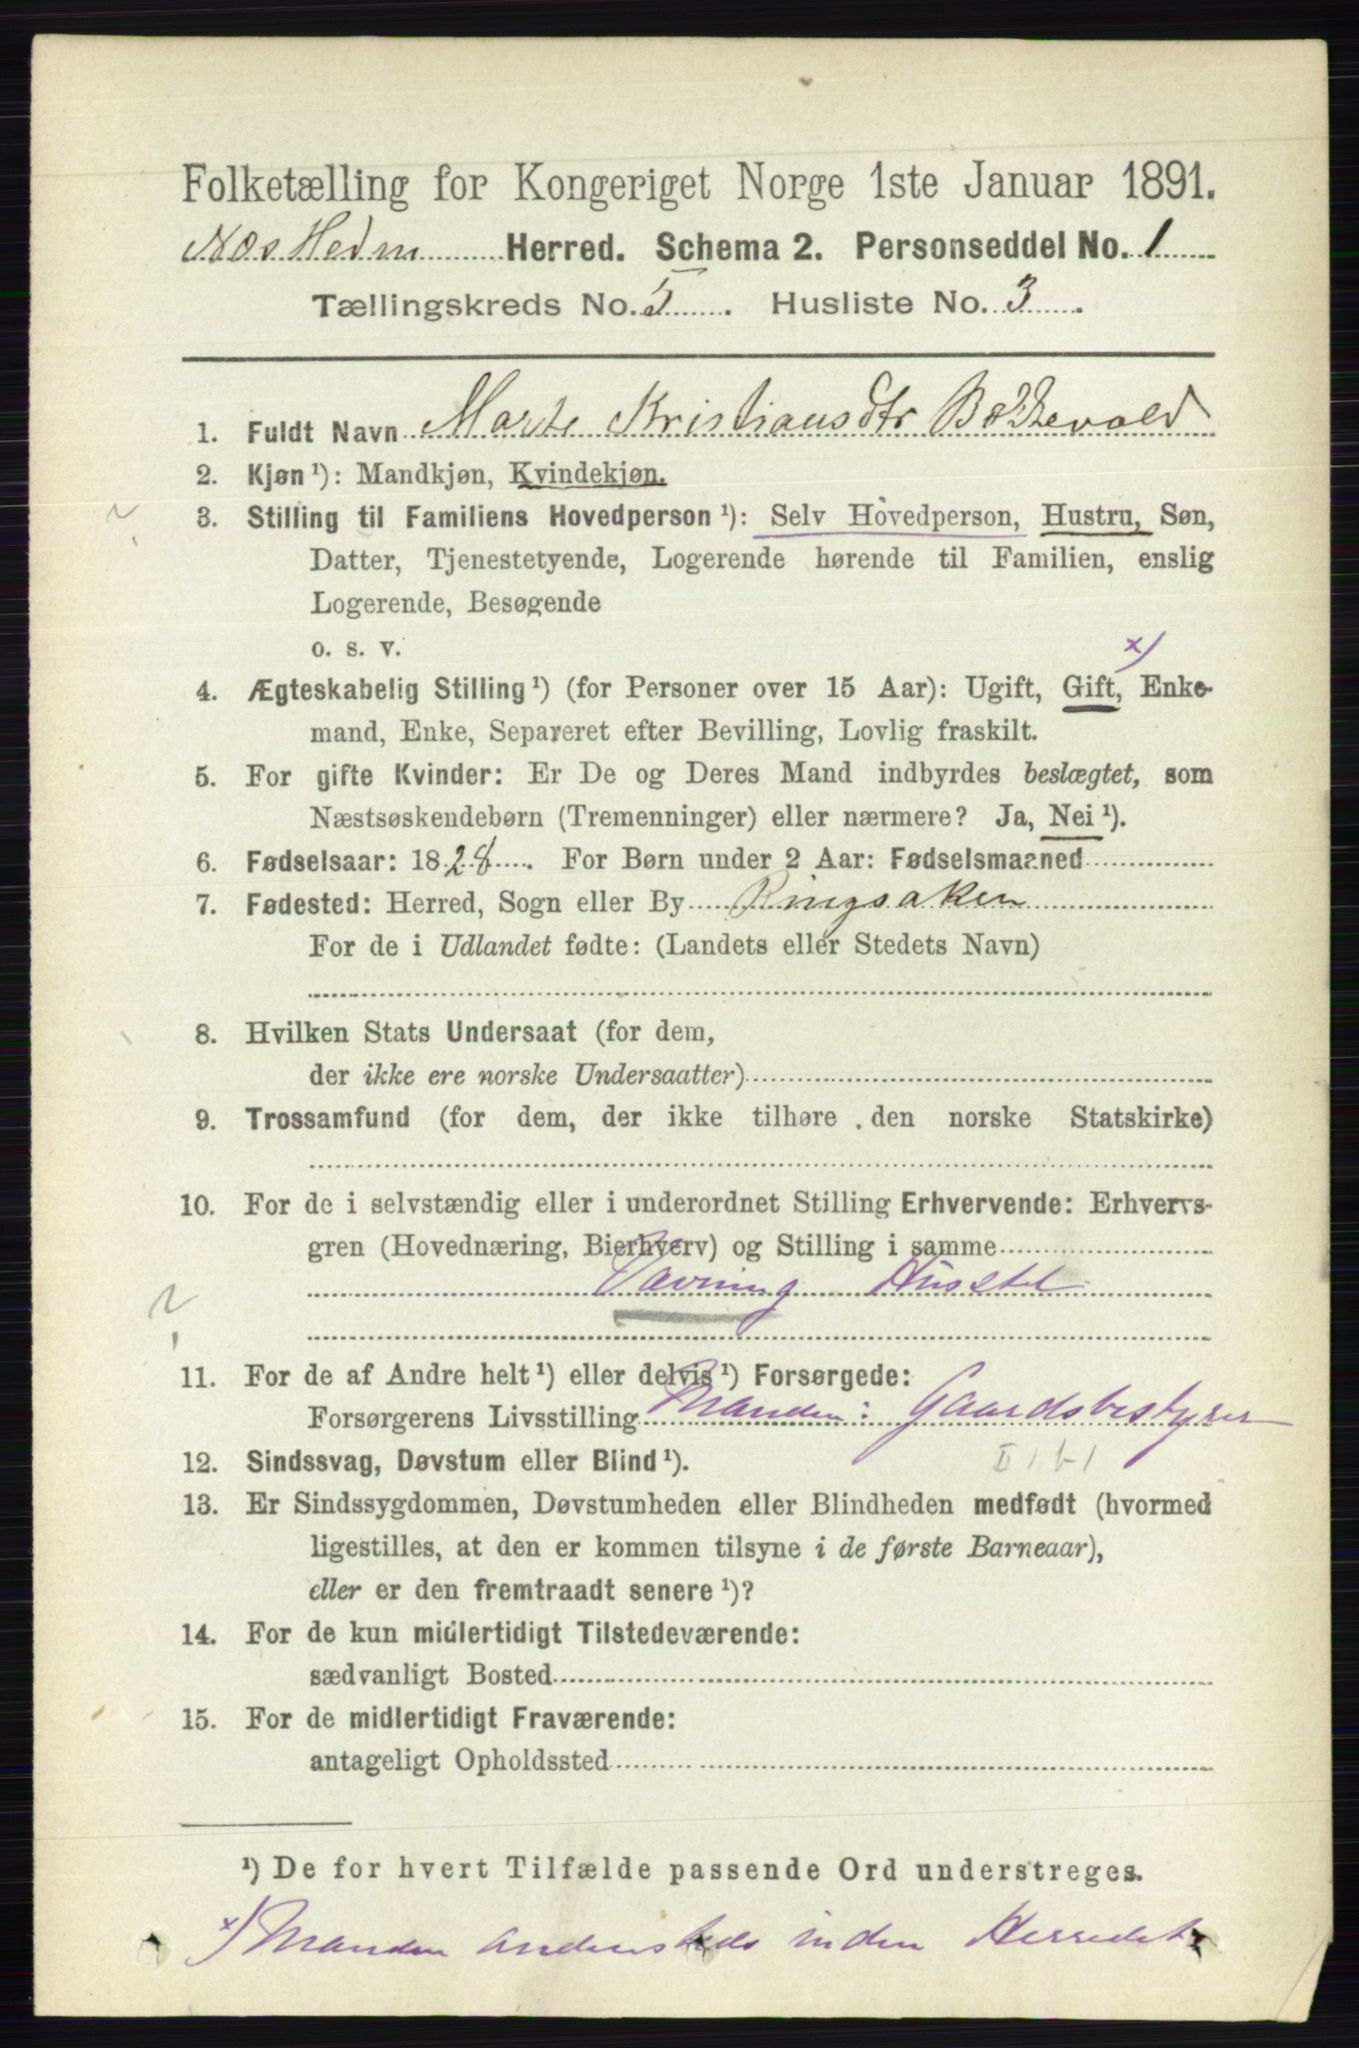 Folketælling for Kongeriget Norge 1ste Januar 1891.
Næs Hedm Herred. Schema 2. Personseddel No. 1
Tællingskreds No. 5. Husliste No. 3.
1. Fuldt Navn Marte Kristiansdtr Bakkevold
2. Kjøn ¹): Mandkjøn, Kvindekjøn.
3. Stilling til Familiens Hovedperson ¹): Selv Hovedperson, Hustru, Søn,
Datter, Tjenestetyende, Logerende hørende til Familien, enslig
Logerende, Besøgende
o. s. v.
x)
4. Ægteskabelig Stilling ¹) (for Personer over 15 Aar): Ugift, Gift, Enke-
mand, Enke, Separeret efter Bevilling, Lovlig fraskilt.
5. For gifte Kvinder: Er De og Deres Mand indbyrdes beslægtet, som
Næstsøskendebørn (Tremenninger) eller nærmere? Ja, Nei ¹).
6. Fødselsaar: 1828. For Børn under 2 Aar: Fødselsmaaned
7. Fødested: Herred, Sogn eller By Ringsaken
For de i Udlandet fødte: (Landets eller Stedets Navn)
8. Hvilken Stats Undersaat (for dem,
der ikke ere norske Undersaatter)
9. Trossamfund (for dem, der ikke tilhøre den norske Statskirke)
10. For de i selvstændig eller i underordnet Stilling Erhvervende: Erhvervs-
gren (Hovednæring, Bierhverv) og Stilling i samme
Vævning Husstel
11. For de af Andre helt ¹) eller delvis ¹) Forsørgede:
Forsørgerens Livsstilling Manden: Gaardsbestyrer
12. Sindssvag, Døvstum eller Blind ¹).
13. Er Sindssygdommen, Døvstumheden eller Blindheden medfødt (hvormed
ligestilles, at den er kommen tilsyne i de første Barneaar),
eller er den fremtraadt senere ¹)?
14. For de kun midlertidigt Tilstedeværende:
sædvanligt Bosted
15. For de midlertidigt Fraværende:
antageligt Opholdssted
¹) De for hvert Tilfælde passende Ord understreges.
x) Manden andensteds inden Herredet